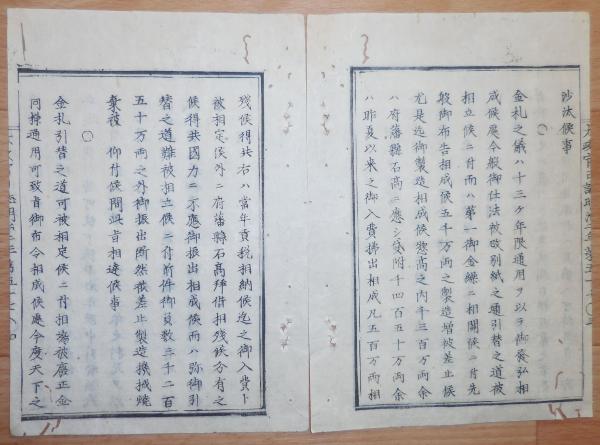 沙汰候事
金札之儀ハ十三ケ年限通用ヲ以テ御發弘相
成候處今般御仕法被改別紙之通引替之道被
相立候ニ付而ハ第一御金繰ニ相關候ニ付先
般御布告相成候五千萬両之製造増被差止候
尤是迄御製造相成候惣高之内千三百萬両余
ハ府藩縣石高ニ應シ貸附千四百五十萬両余
ハ昨夏以来之御入費拂出相成凡五百萬両相
残候得共右ハ當年貢税相納候迄之御入費ト
被相定候外ニ府藩縣石高拜借相残候分有之
候得共國力ニ不應御振出相成候而ハ弥御引
替之道難被相立候ニ付前件御員数三千二百
五十万両之外御振出断然被差止製造機械焼
棄被 仰付候間此旨相達候事
〇
金札引替之道可被相定候ニ付相場被廢正金
同様通用可致旨御布令相成候處今度天下之